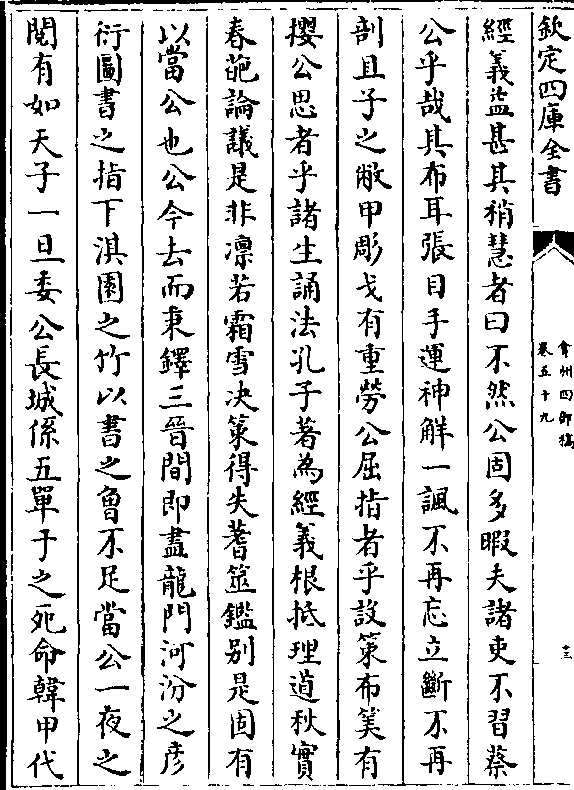 欽定四庫全書
弇州四部稿
卷五十九
十三
經義益甚其稍慧者曰不然公固多暇夫諸吏不習蔡
公乎哉其布耳張目手運神解一諷不再忘立斷不再
剖且子之敝甲彫戈有重勞公屈指者乎設策布筭有
攖公思者乎諸生誦法孔子著為經義根抵理道秋實
春葩論議是非凛若霜雪决策得失蓍筮鑑别是固有
以當公也公今去而秉鐸三晉間即盡龍門河汾之彦
衍圖書之指下淇園之竹以書之魯不足當公一夜之
閲有如天子一旦委公長城係五單于之死命韓甲代